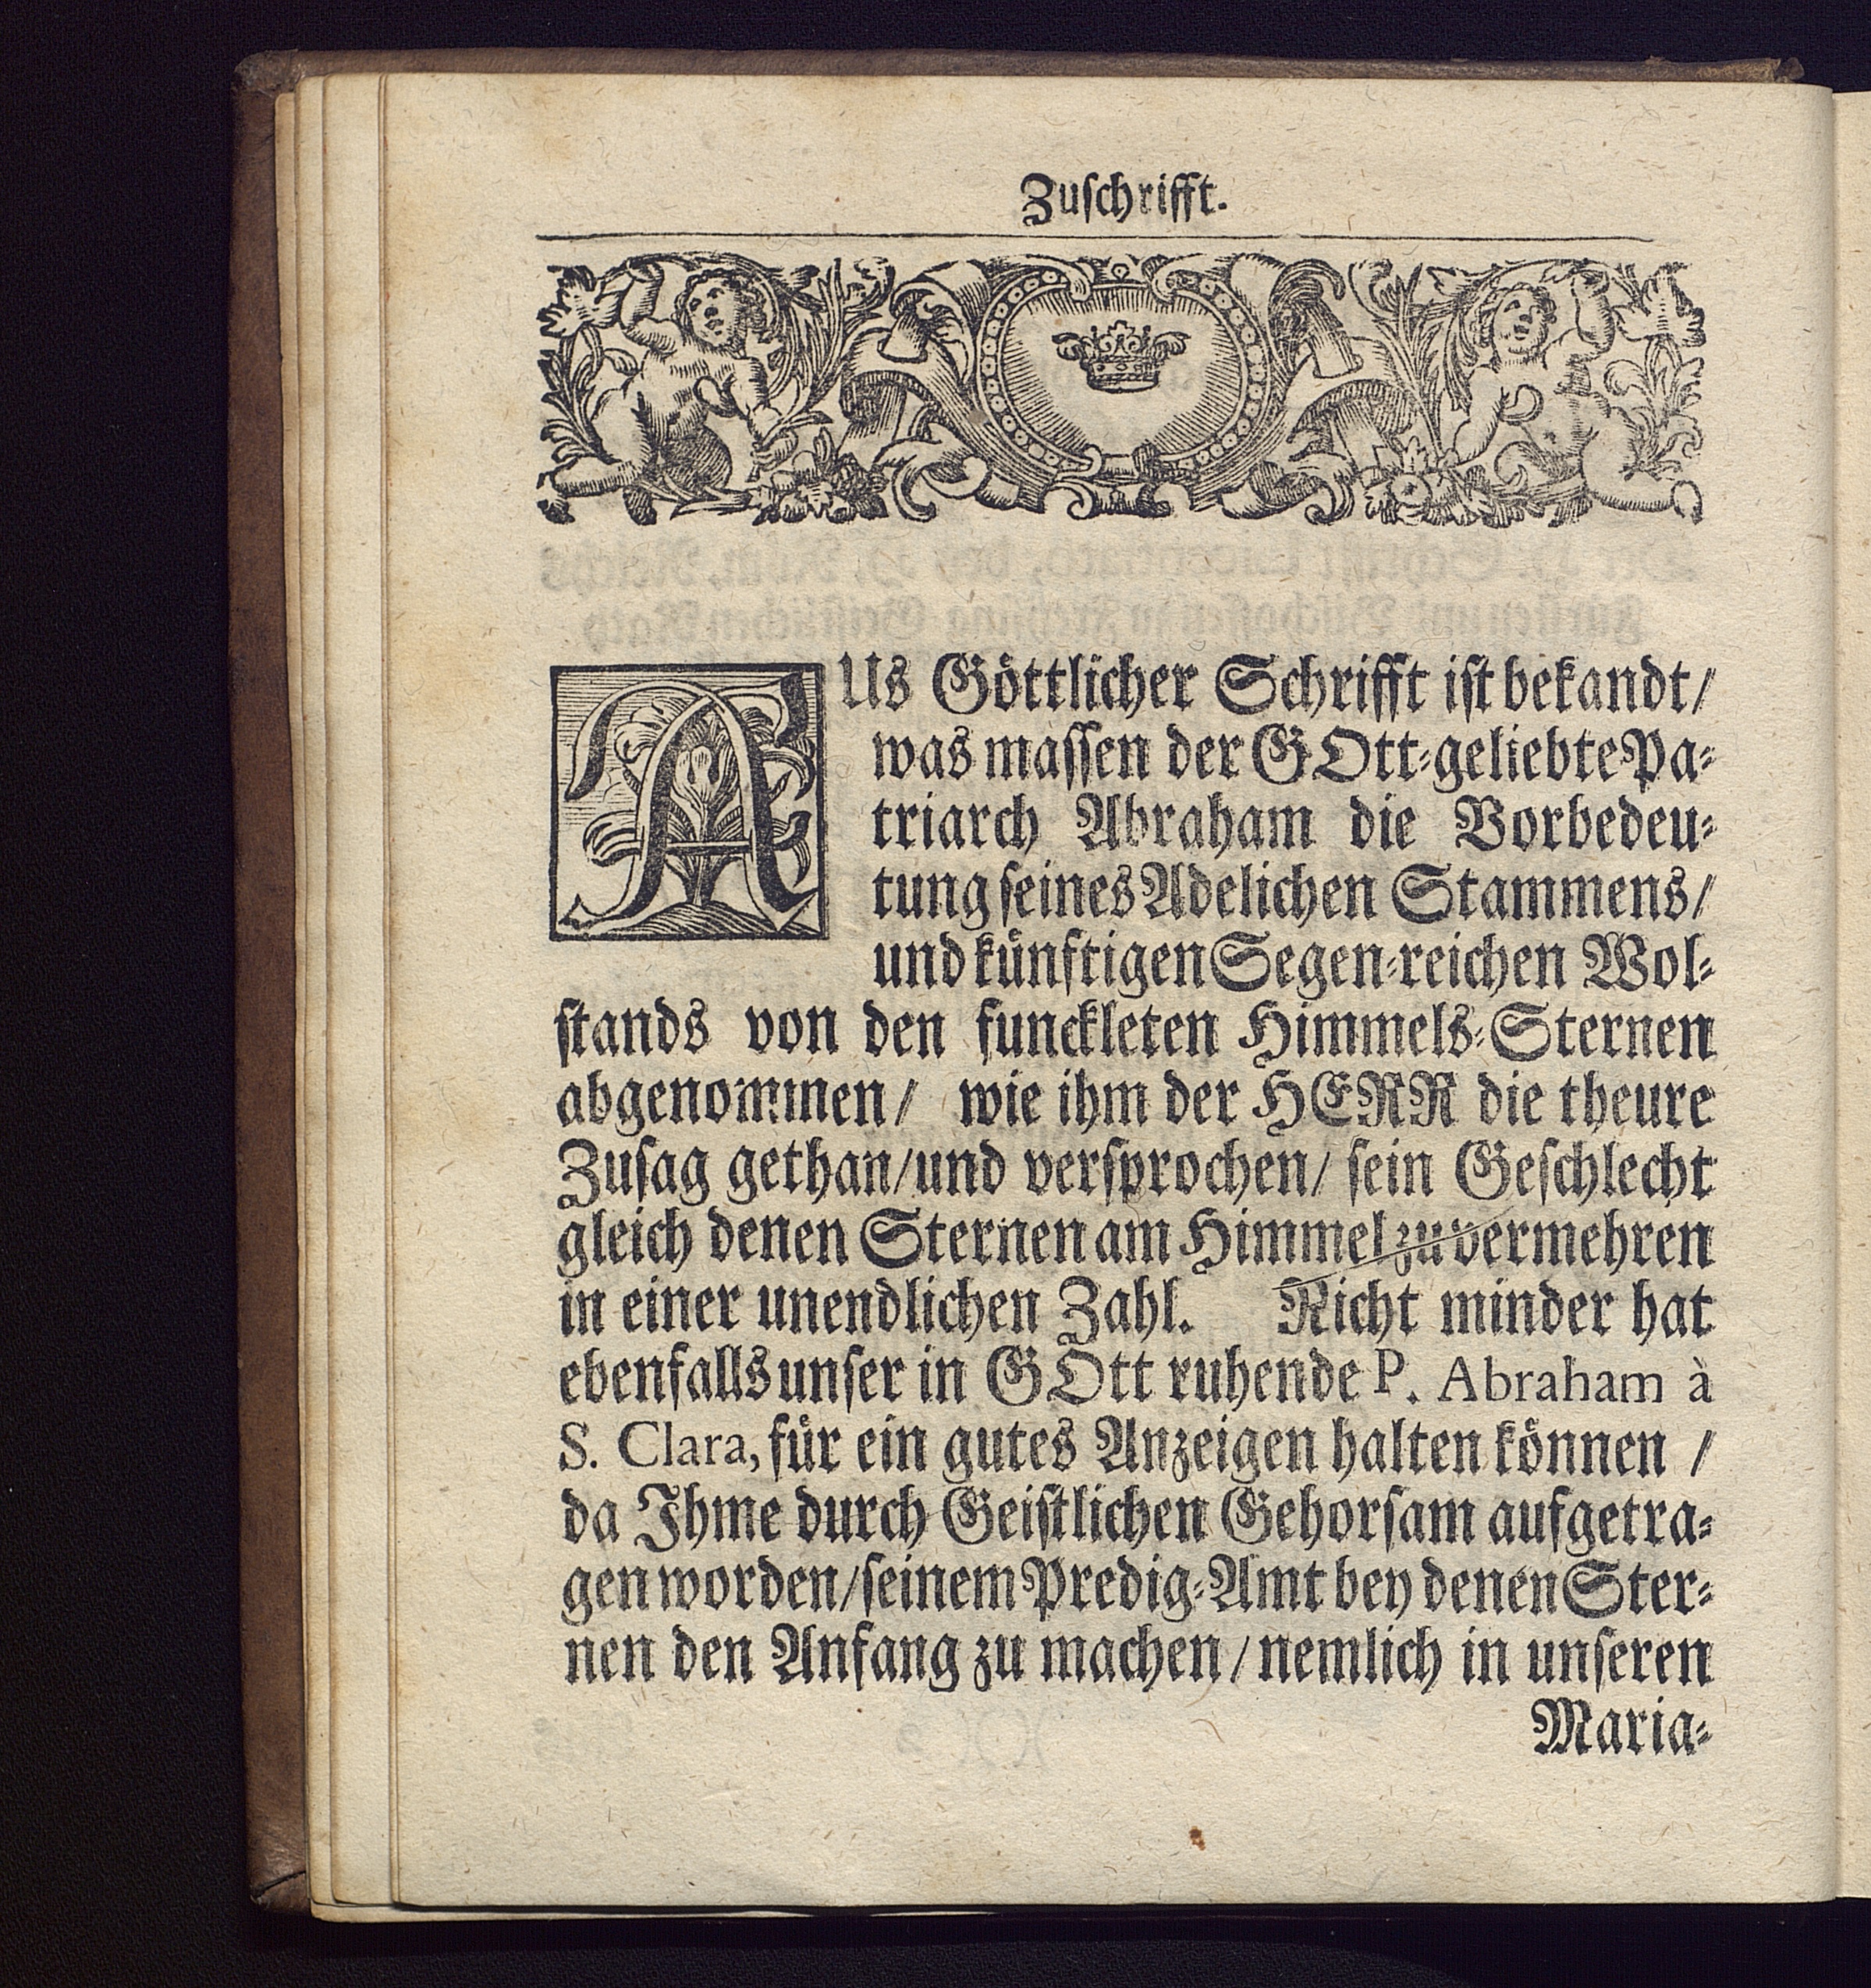 Zuſchrifft.
AUs Göttlicher Schrifft iſt bekandt/
was maſſen der GOtt-geliebte Pa-
triarch Abraham die Vorbedeu-
tung ſeines Adelichen Stammens/
und künftigen Segen-reichen Wol-
ſtands von den funckleten Himmels-Sternen
abgenommen/ wie ihm der HERR die theure
Zuſag gethan/und verſprochen/ ſein Geſchlecht
gleich denen Sternen am Himmel zu vermehren
in einer unendlichen Zahl. Nicht minder hat
ebenfalls unſer in GOtt ruhende P. Abraham à
S. Clara, für ein gutes Anzeigen halten können /
da Ihme durch Geiſtlichen Gehorſam aufgetra-
gen worden/ſeinem Predig-Amt bey denen Ster-
nen den Anfang zu machen/nemlich in unſeren
Maria-